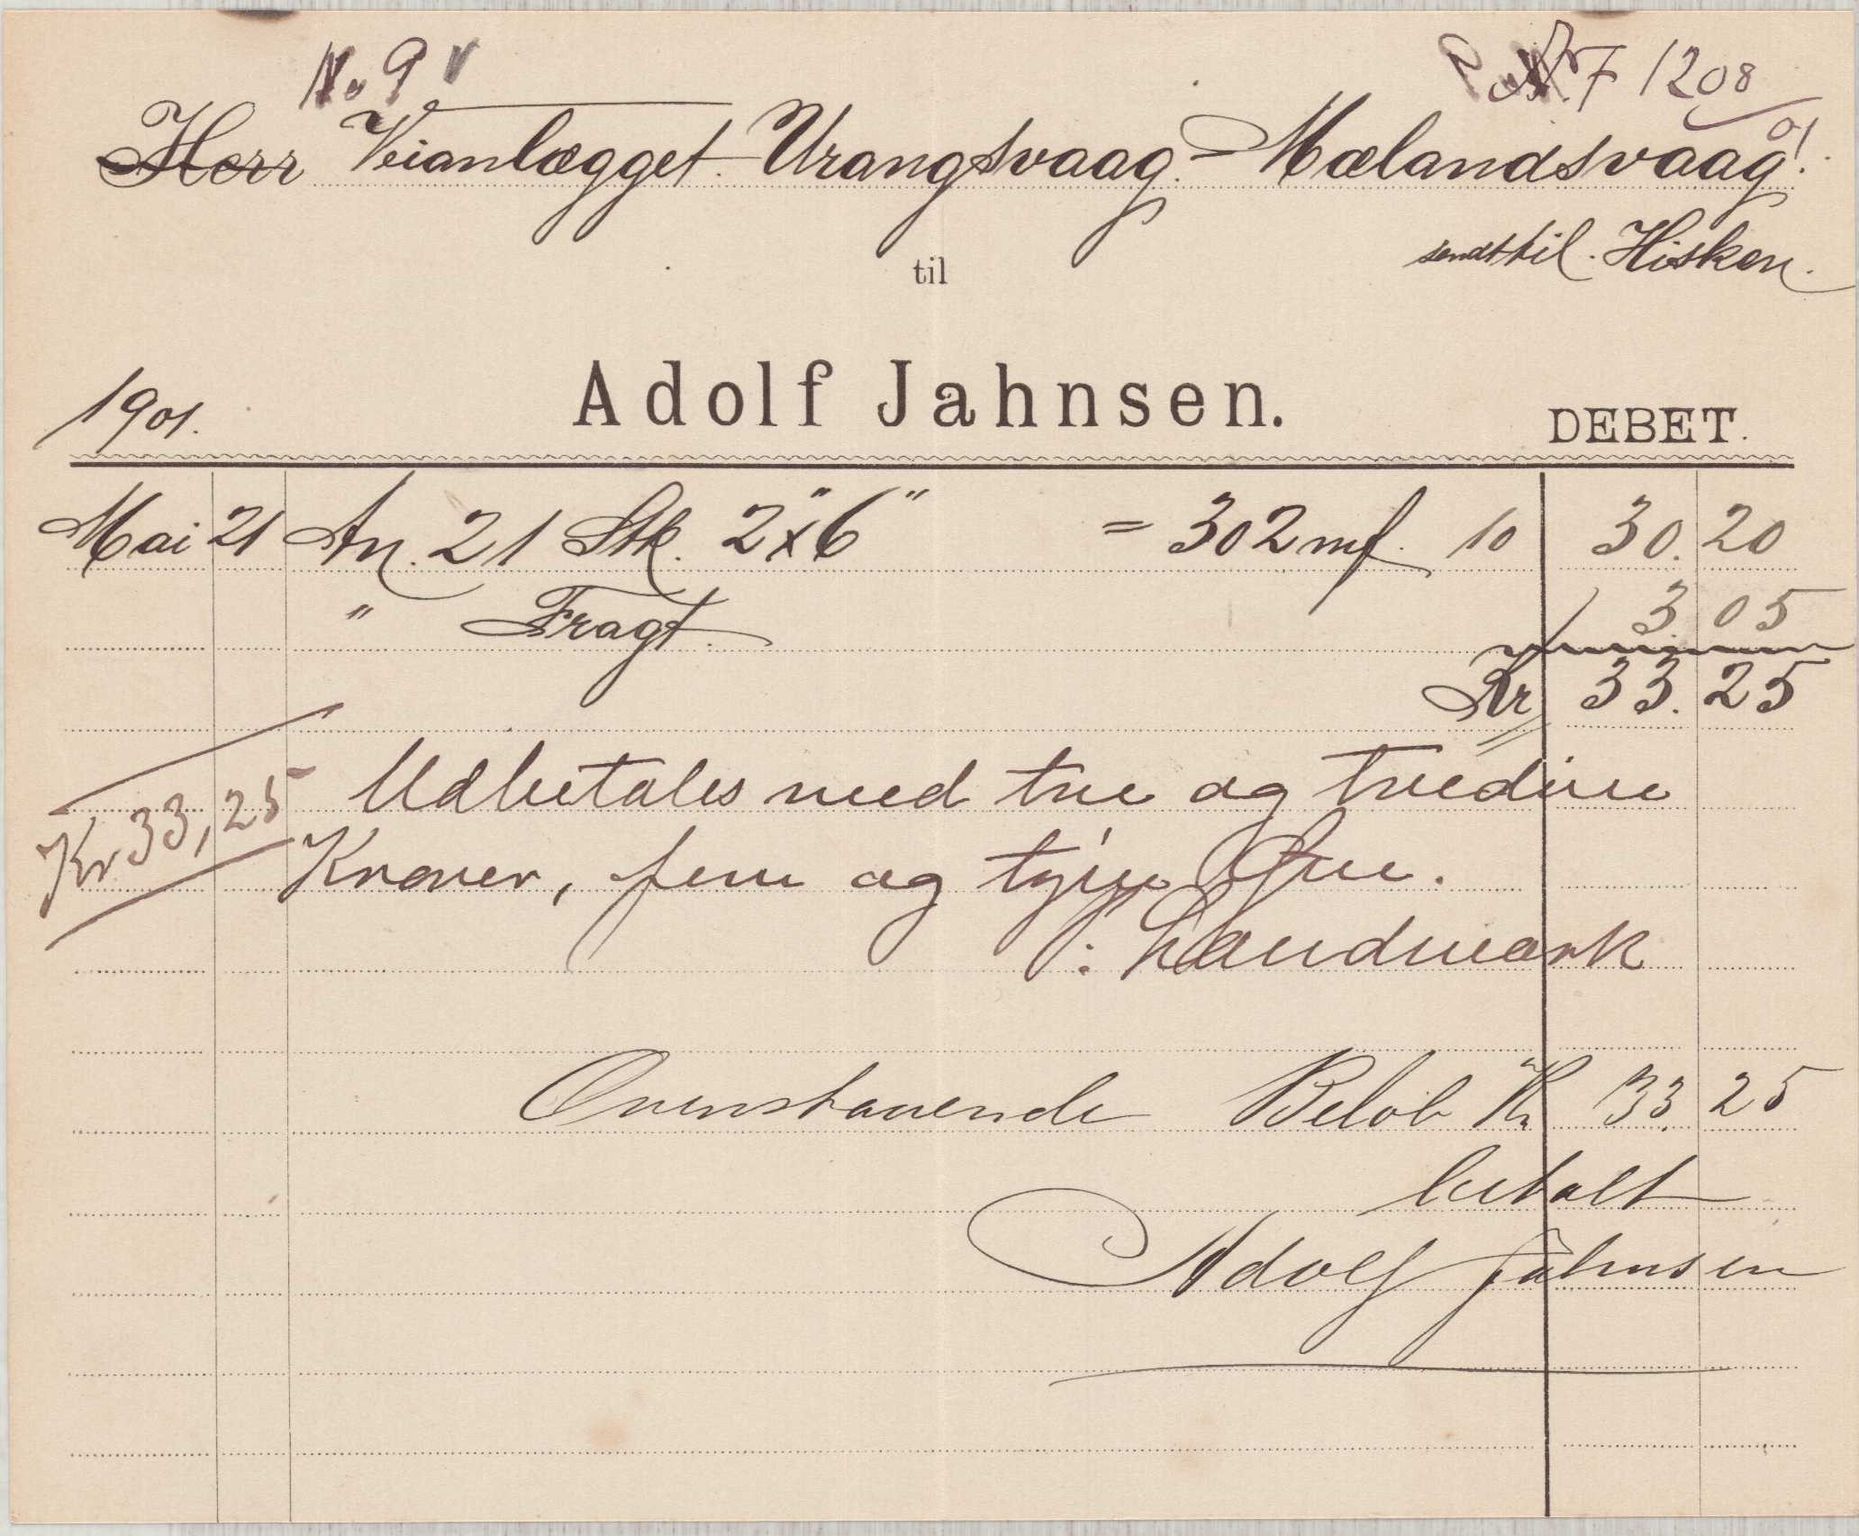 No 9
Nr 7 1208
Herr Veianlægget Urangsvaag - Mælandsvaag!
sendt til Hisken.
til
1901. Adolf Jahnsen. DEBET.
Mai 21 An. 21 Stk. 2"x6" = 302 mf. 10 30.20
" Fragt. 3 05
Kr 33.25
Kr 33,25
Udbetales med tre og tredive
Kroner, fem og tyve Øre.
Landmark
Ovenstaaende Beløb Kr 33.25
betalt
Adolf Jahnsen